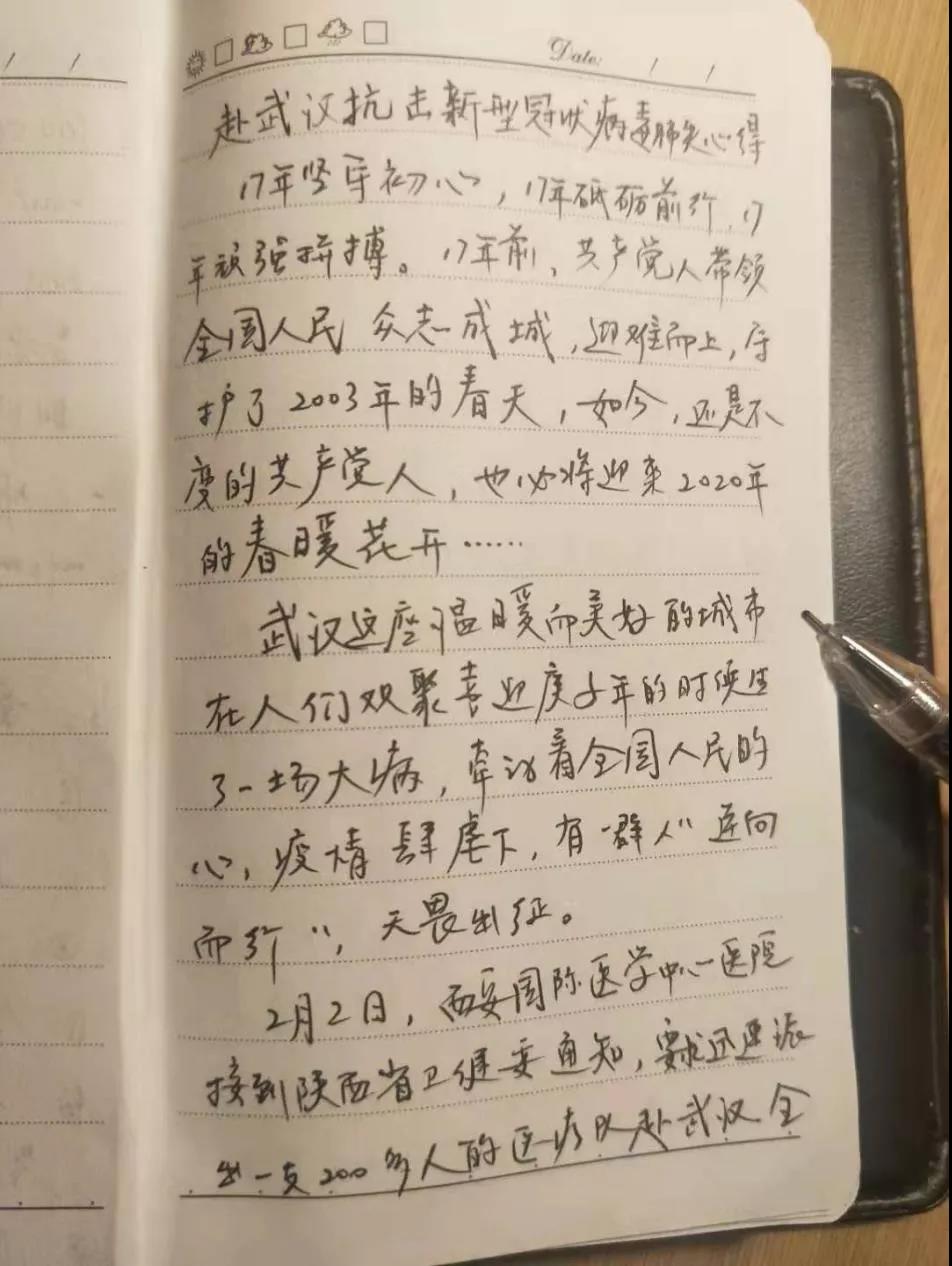 Date: / /
赴武汉抗击新型冠状病毒肺炎心得
17年坚守初心，17年砥砺前行，17
年顽强拼搏。17年前，共产党人带领
全国人民众志成城，迎难而上，守
护了2003年的春天，如今，还是不
变的共产党人，也必将迎来2020年
的春暖花开……
武汉这座温暖而美好的城市
在人们欢聚喜迎庚子年的时候生
了一场大病，牵动着全国人民的
心，疫情肆虐下，有一群人“逆向
而行”，无畏出征。
2月2日，西安国际医学中心医院
接到陕西省卫健委通知，要求迅速派
出一支200多人的医疗队赴武汉全